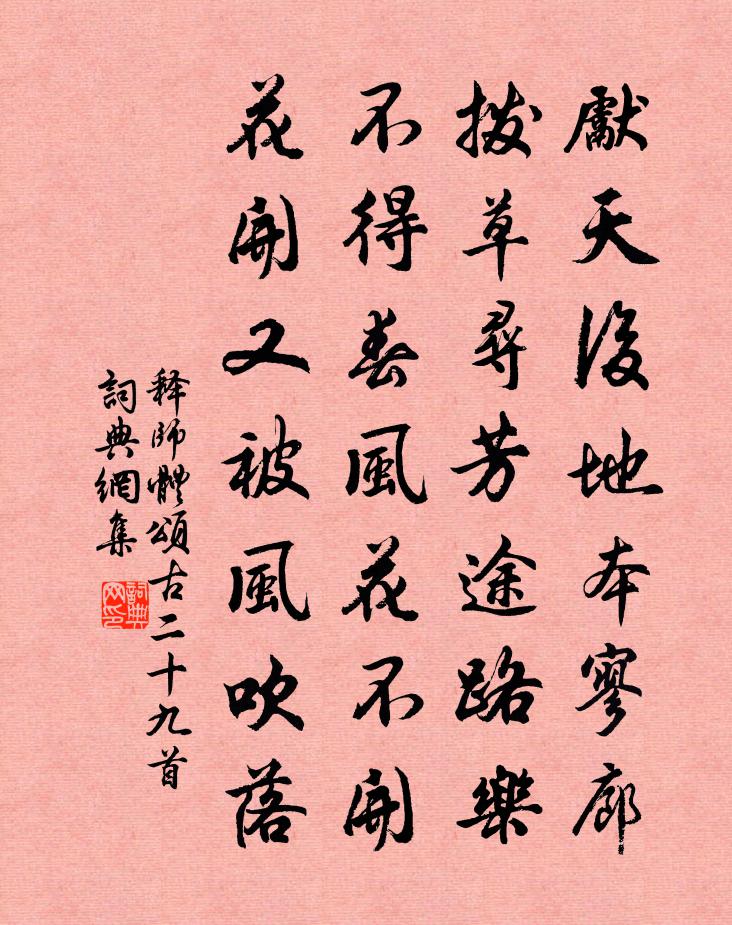 獻天後地本寥廊
撥草尋芳途路樂
不得春風花不開
花開又被風吹落
释師體頌古二十九首
詞典網集
詞典网印